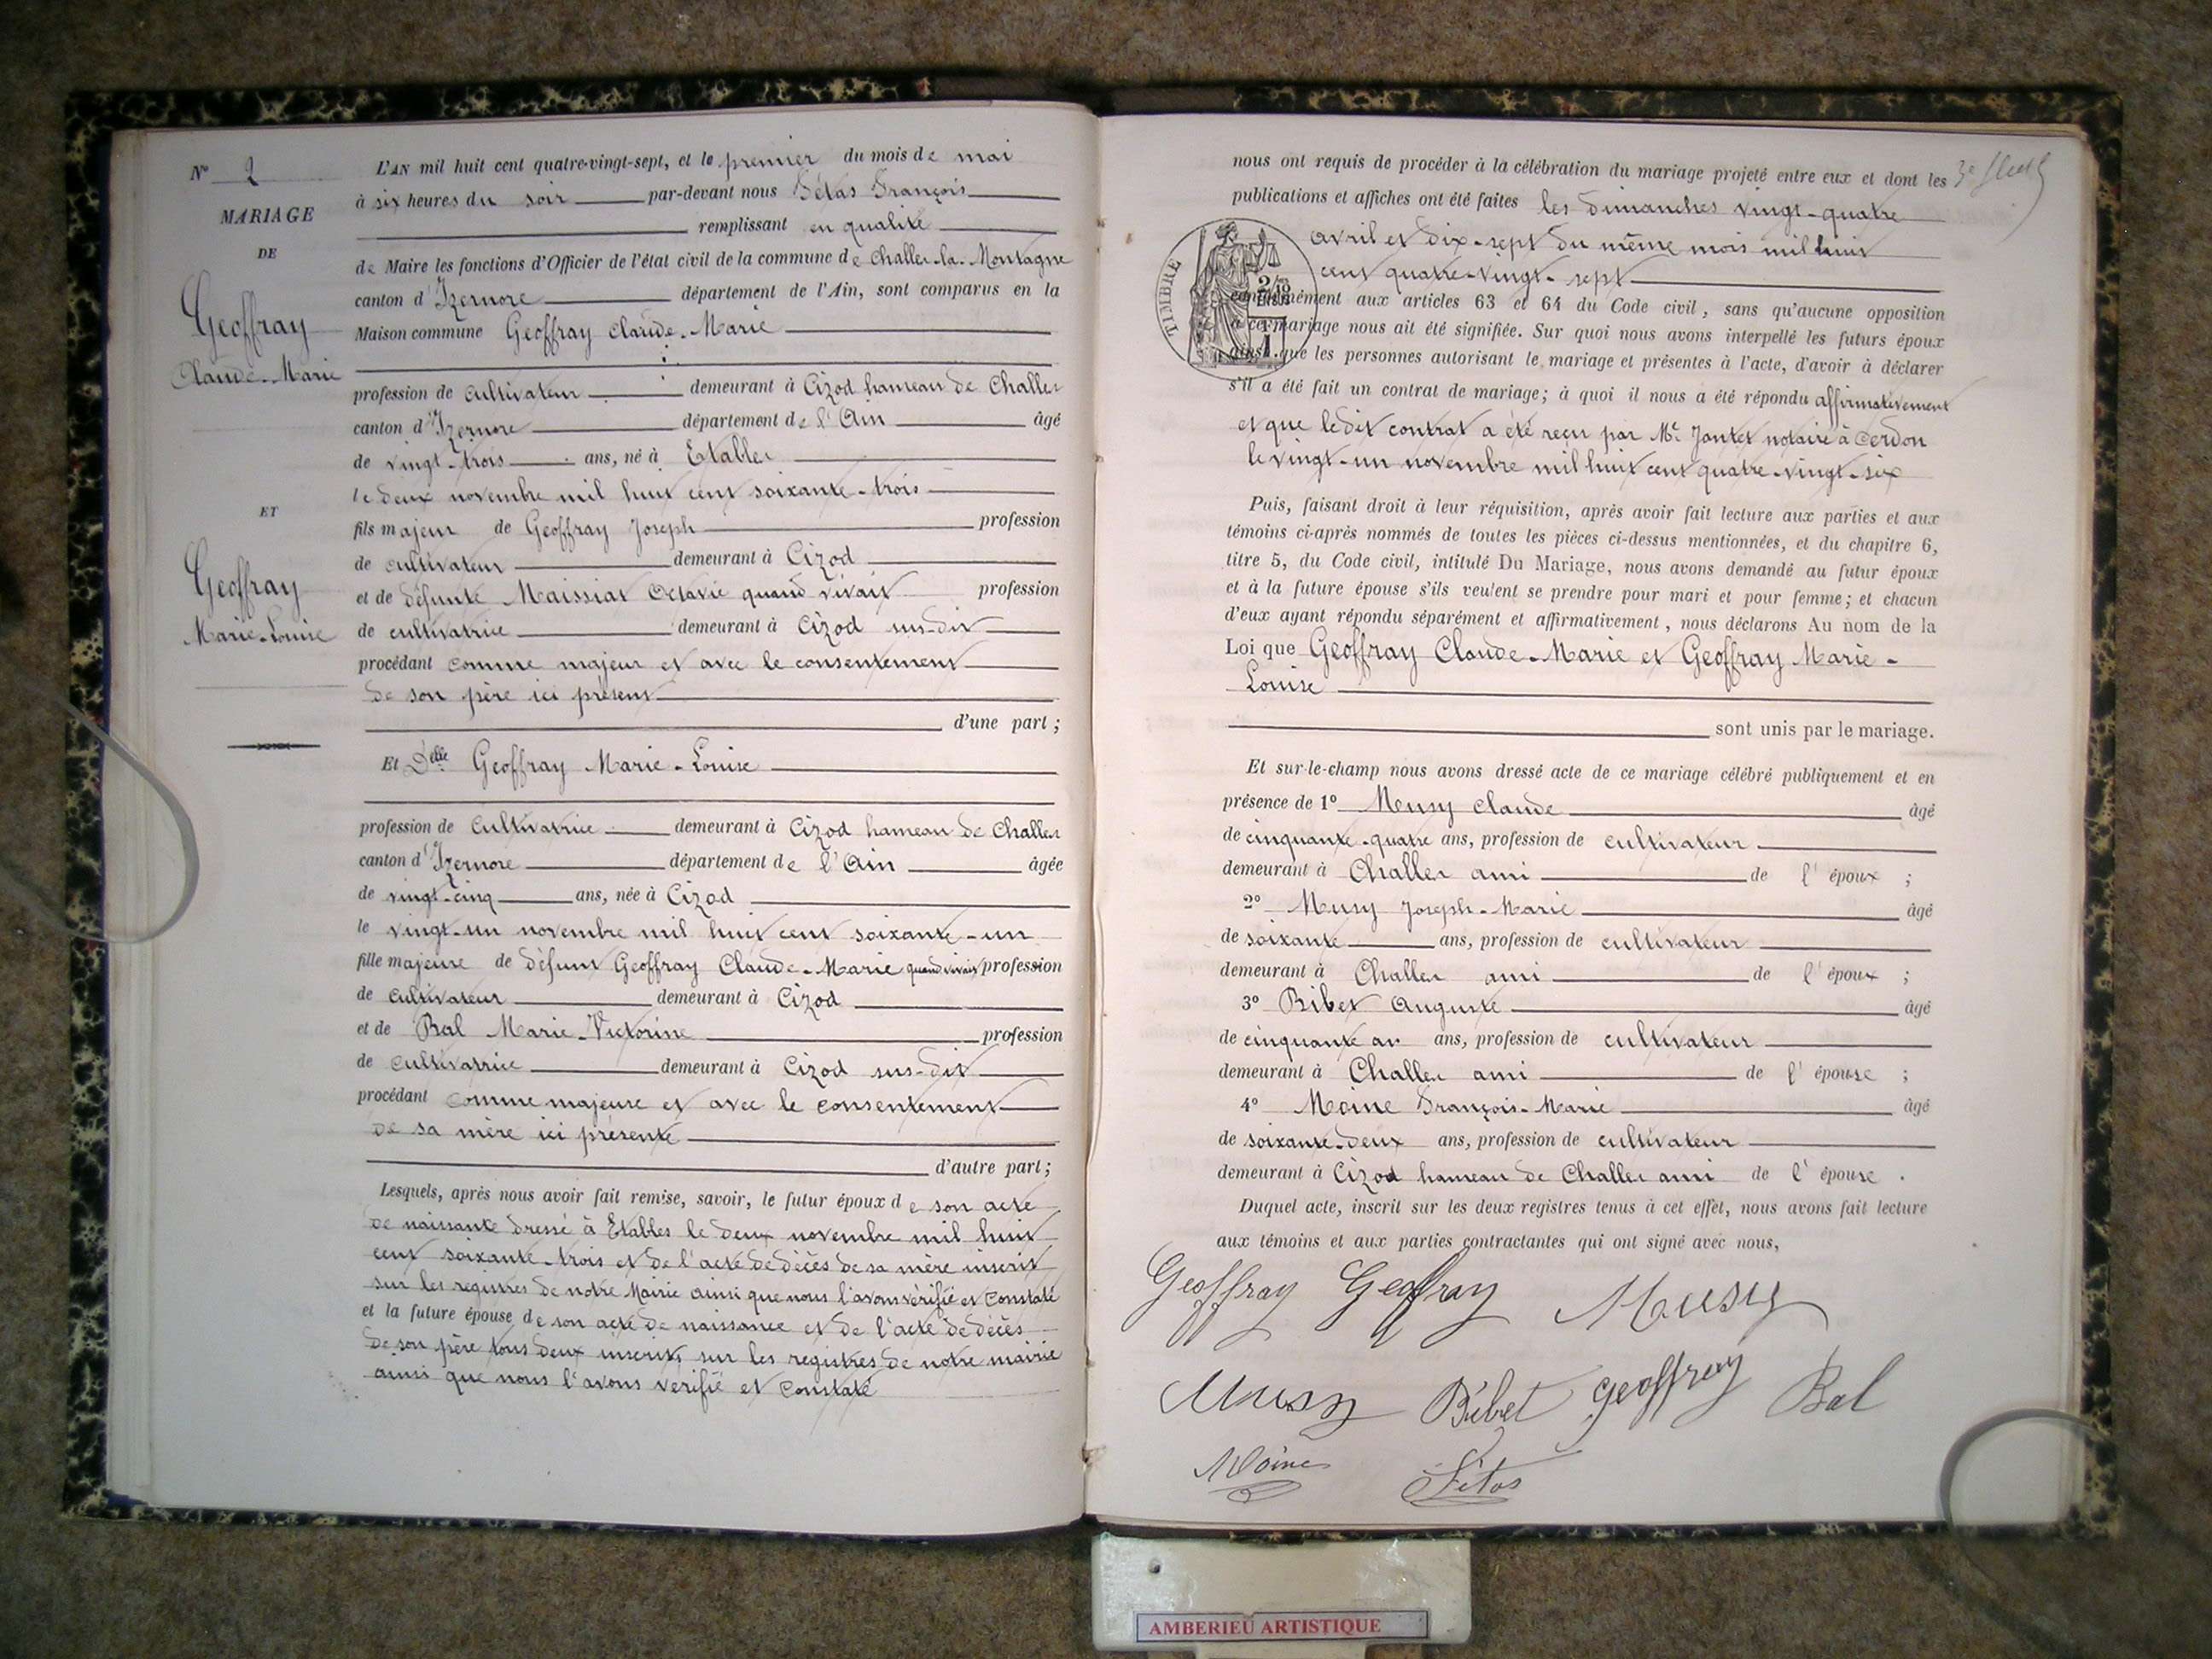 N° 2
MARIAGE
DE
Geoffray
Claude-Marie
ET
Geoffray
Marie-Louise
L'AN mil huit cent quatre-vingt-sept, et le premier du mois de mai
à six heures du soir par-devant nous Létas François
remplissant en qualité
de Maire les fonctions d'Officier de l'état civil de la commune de Challes-la-Montagne
canton d'Izernore département de l'Ain, sont comparus en la
Maison commune Geoffray Claude-Marie
profession de cultivateur demeurant à Cizod hameau de Challes
canton d'Izernore département de l'Ain âgé
de vingt-trois ans, né à Etables
le deux novembre mil huit cent soixante-trois
fils majeur de Geoffray Joseph profession
de cultivateur demeurant à Cizod
et de défunte Maissiat Octavie quand vivait profession
de cultivatrice demeurant à Cizod sus-dit
procédant comme majeur et avec le consentement
de son père ici présent
d'une part ;
Et Delle Geoffray Marie-Louise
profession de Cultivatrice demeurant à Cizod hameau de Challes
canton d'Izernore département de l'Ain âgée
de vingt-cinq ans, née à Cizod
le vingt-un novembre mil huit cent soixante-un
fille majeure de défunt Geoffray Claude-Marie quand vivait profession
de cultivateur demeurant à Cizod
et de Bal Marie-Victorine profession
de cultivatrice demeurant à Cizod sus-dit
procédant comme majeure et avec le consentement
de sa mère ici présente
d'autre part ;
Lesquels, après nous avoir fait remise, savoir, le futur époux de son acte
de naissance dressé à Etables le deux novembre mil huit
cent soixante-trois et de l'acte de décès de sa mère inscrit
sur les registres de notre Mairie ainsi que nous l'avons vérifié et constaté
et la future épouse de son acte de naissance et de l'acte de décès
de son père tous deux inscrits sur les registres de notre mairie
ainsi que nous l'avons vérifié et constaté
nous ont requis de procéder à la célébration du mariage projeté entre eux et dont les
publications et affiches ont été faites les dimanches vingt-quatre
avril et dix-sept du même mois mil huit
cent quatre-vingt-sept
TIMBRE
conformément aux articles 63 et 64 du Code civil, sans qu'aucune opposition
à ce mariage nous ait été signifiée. Sur quoi nous avons interpellé les futurs époux
ainsi que les personnes autorisant le mariage et présentes à l'acte, d'avoir à déclarer
s'il a été fait un contrat de mariage; à quoi il nous a été répondu affirmativement
et que ledit contrat a été reçu par Me Jantet notaire à Cerdon
le vingt-un novembre mil huit cent quatre-vingt-six
Puis, faisant droit à leur réquisition, après avoir fait lecture aux parties et aux
témoins ci-après nommés de toutes les pièces ci-dessus mentionnées, et du chapitre 6,
titre 5, du Code civil, intitulé Du Mariage, nous avons demandé au futur époux
et à la future épouse s'ils veulent se prendre pour mari et pour femme; et chacun
d'eux ayant répondu séparément et affirmativement, nous déclarons Au nom de la
Loi que Geoffray Claude-Marie et Geoffray Marie-
Louise
sont unis par le mariage.
Et sur-le-champ nous avons dressé acte de ce mariage célébré publiquement et en
présence de 1° Musy Claude âgé
de cinquante-quatre ans, profession de cultivateur
demeurant à Challes ami de l'époux ;
2° Musy Joseph-Marie âgé
de soixante ans, profession de cultivateur
demeurant à Challes ami de l'époux ;
3° Bibet Auguste âgé
de cinquante ans, profession de cultivateur
demeurant à Challes ami de l'épouse ;
4° Moine François-Marie âgé
de soixante-deux ans, profession de cultivateur
demeurant à Cizod hameau de Challes ami de l'épouse .
Duquel acte, inscrit sur les deux registres tenus à cet effet, nous avons fait lecture
aux témoins et aux parties contractantes qui ont signé avec nous,
Geoffray Geoffray Musy
Musy Bibet Geoffray Bal
Moine Létas
AMBERIEU ARTISTIQUE